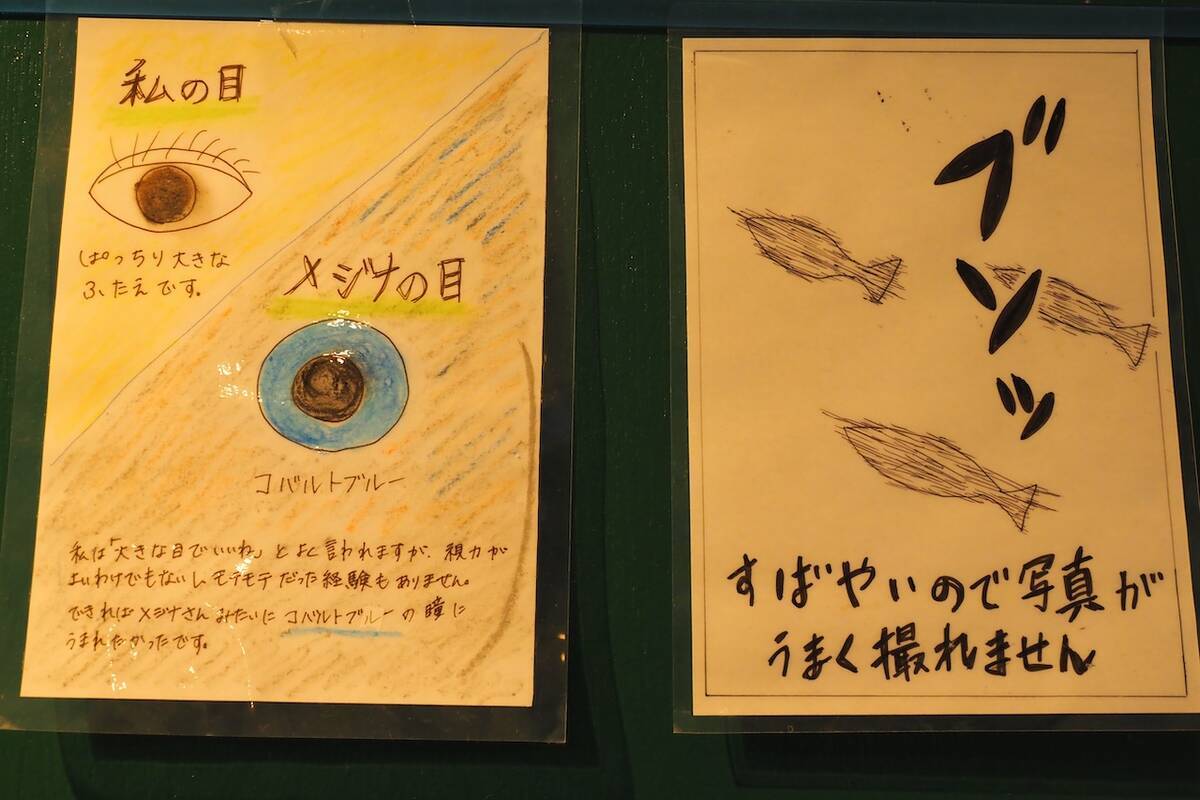 私の目
ぱっちり大きな
ふたえです。
メジナの目
コバルトブルー
私は「大きな目でいいね」とよく言われますが、視力が
よいわけでもないし、モテモテだった経験もありません。
できればメジナさんみたいにコバルトブルーの瞳に
うまれたかったです。
ブンッ
すばやいので写真が
うまく撮れません